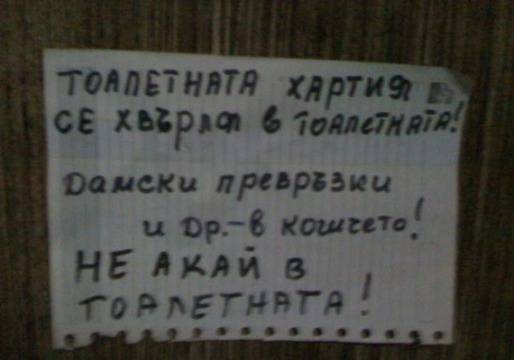 ТОАЛЕТНАТА ХАРТИЯ
СЕ ХВЪРЛЯ в ТОАЛЕТНАТА!
Дамски превръзки
и Др.-в кошчето!
НЕ АКАЙ В
ТОАЛЕТНАТА!